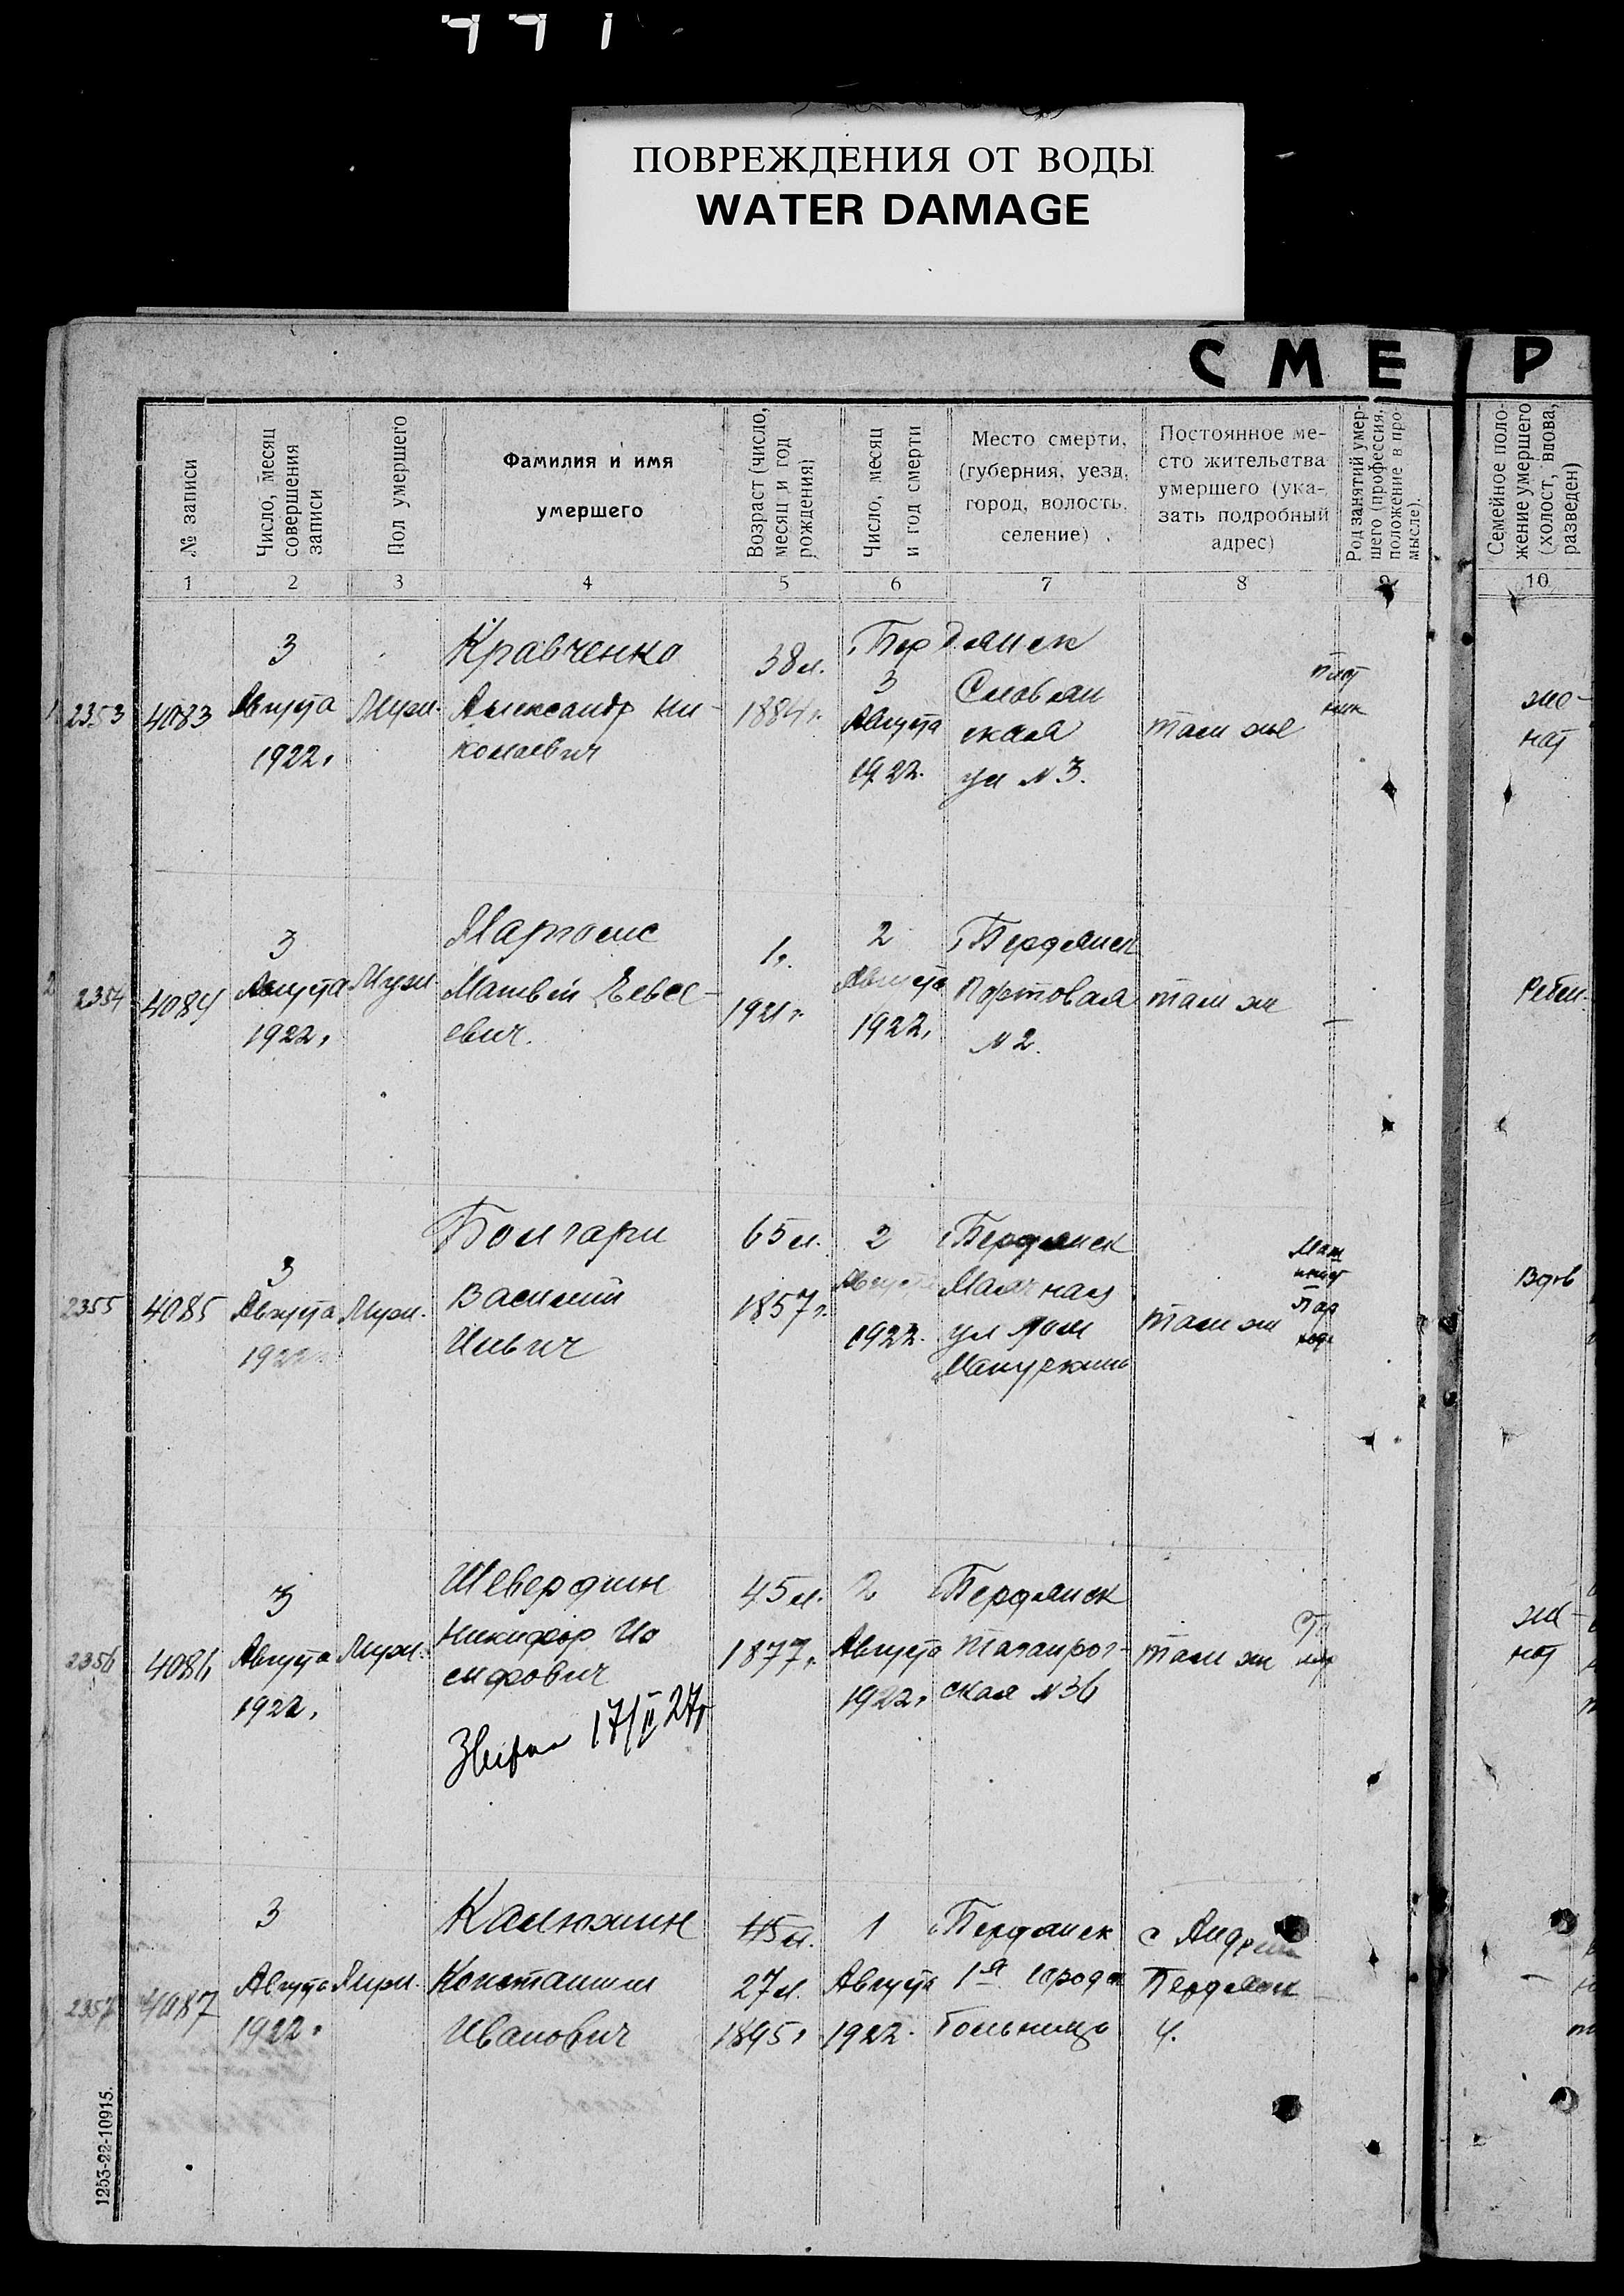 ПОВРЕЖДЕНИЯ ОТ ВОДЫ
WATER DAMAGE
СМЕ Р
№ записи
Число, месяц
совершения
записи
Пол умершего
Фамилия и имя
умершего
Возраст (число,
месяц и год
рождения)
Число, месяц
и год смерти
Место смерти,
(губерния, уезд,
город, волость,
селение)
Постоянное ме-
сто жительства
умершего (ука-
зать подробный
адрес)
Род занятий умер-
шего (профессия,
положение в про-
мысле).
Семейное поло-
жение умершего
(холост, вдова,
разведен)
1 2 3 4 5 6 7 8 9 10
2353
4083
3
Августа
1922г
Муж.
Кравченко
Александр Ни-
колаевич
38л.
1884г.
Бердянск
3
Августа
1922.
Словян
ская
ул № 3.
там же
плот
ник
же-
нат
2354
4084
3
Августа
1922г
Муж
Марголис
Матвей Евсе-
евич.
1г.
1921г.
2
Августа
1922г
Бердянск
Портовая
№ 2.
там же
—
Ребен.
2355
4085
3
Августа
1922г
Муж.
Болгари
Василий
Ильич
65л.
1857г.
2
Августа
1922.
Бердянск
Маячная
ул дом
там же
Маш
инист
Пар
хода
Вдов
2356
4086
3
Августа
1922г
Муж.
Шевердин
Никифор Ио
сифович
17/II 27г
45л.
1877г.
2
Августа
1922г
Бердянск
Таганрог-
ская № 36
там же
же-
нат
2357
4087
3
Августа
1922г
Муж.
Калюжин
Константин
Иванович
45л.
27л.
1895г
1
Августа
1922.
Бердянск
1я Городс
Больница
с Андр
Бердянск
у.
—
1253-22-10915.